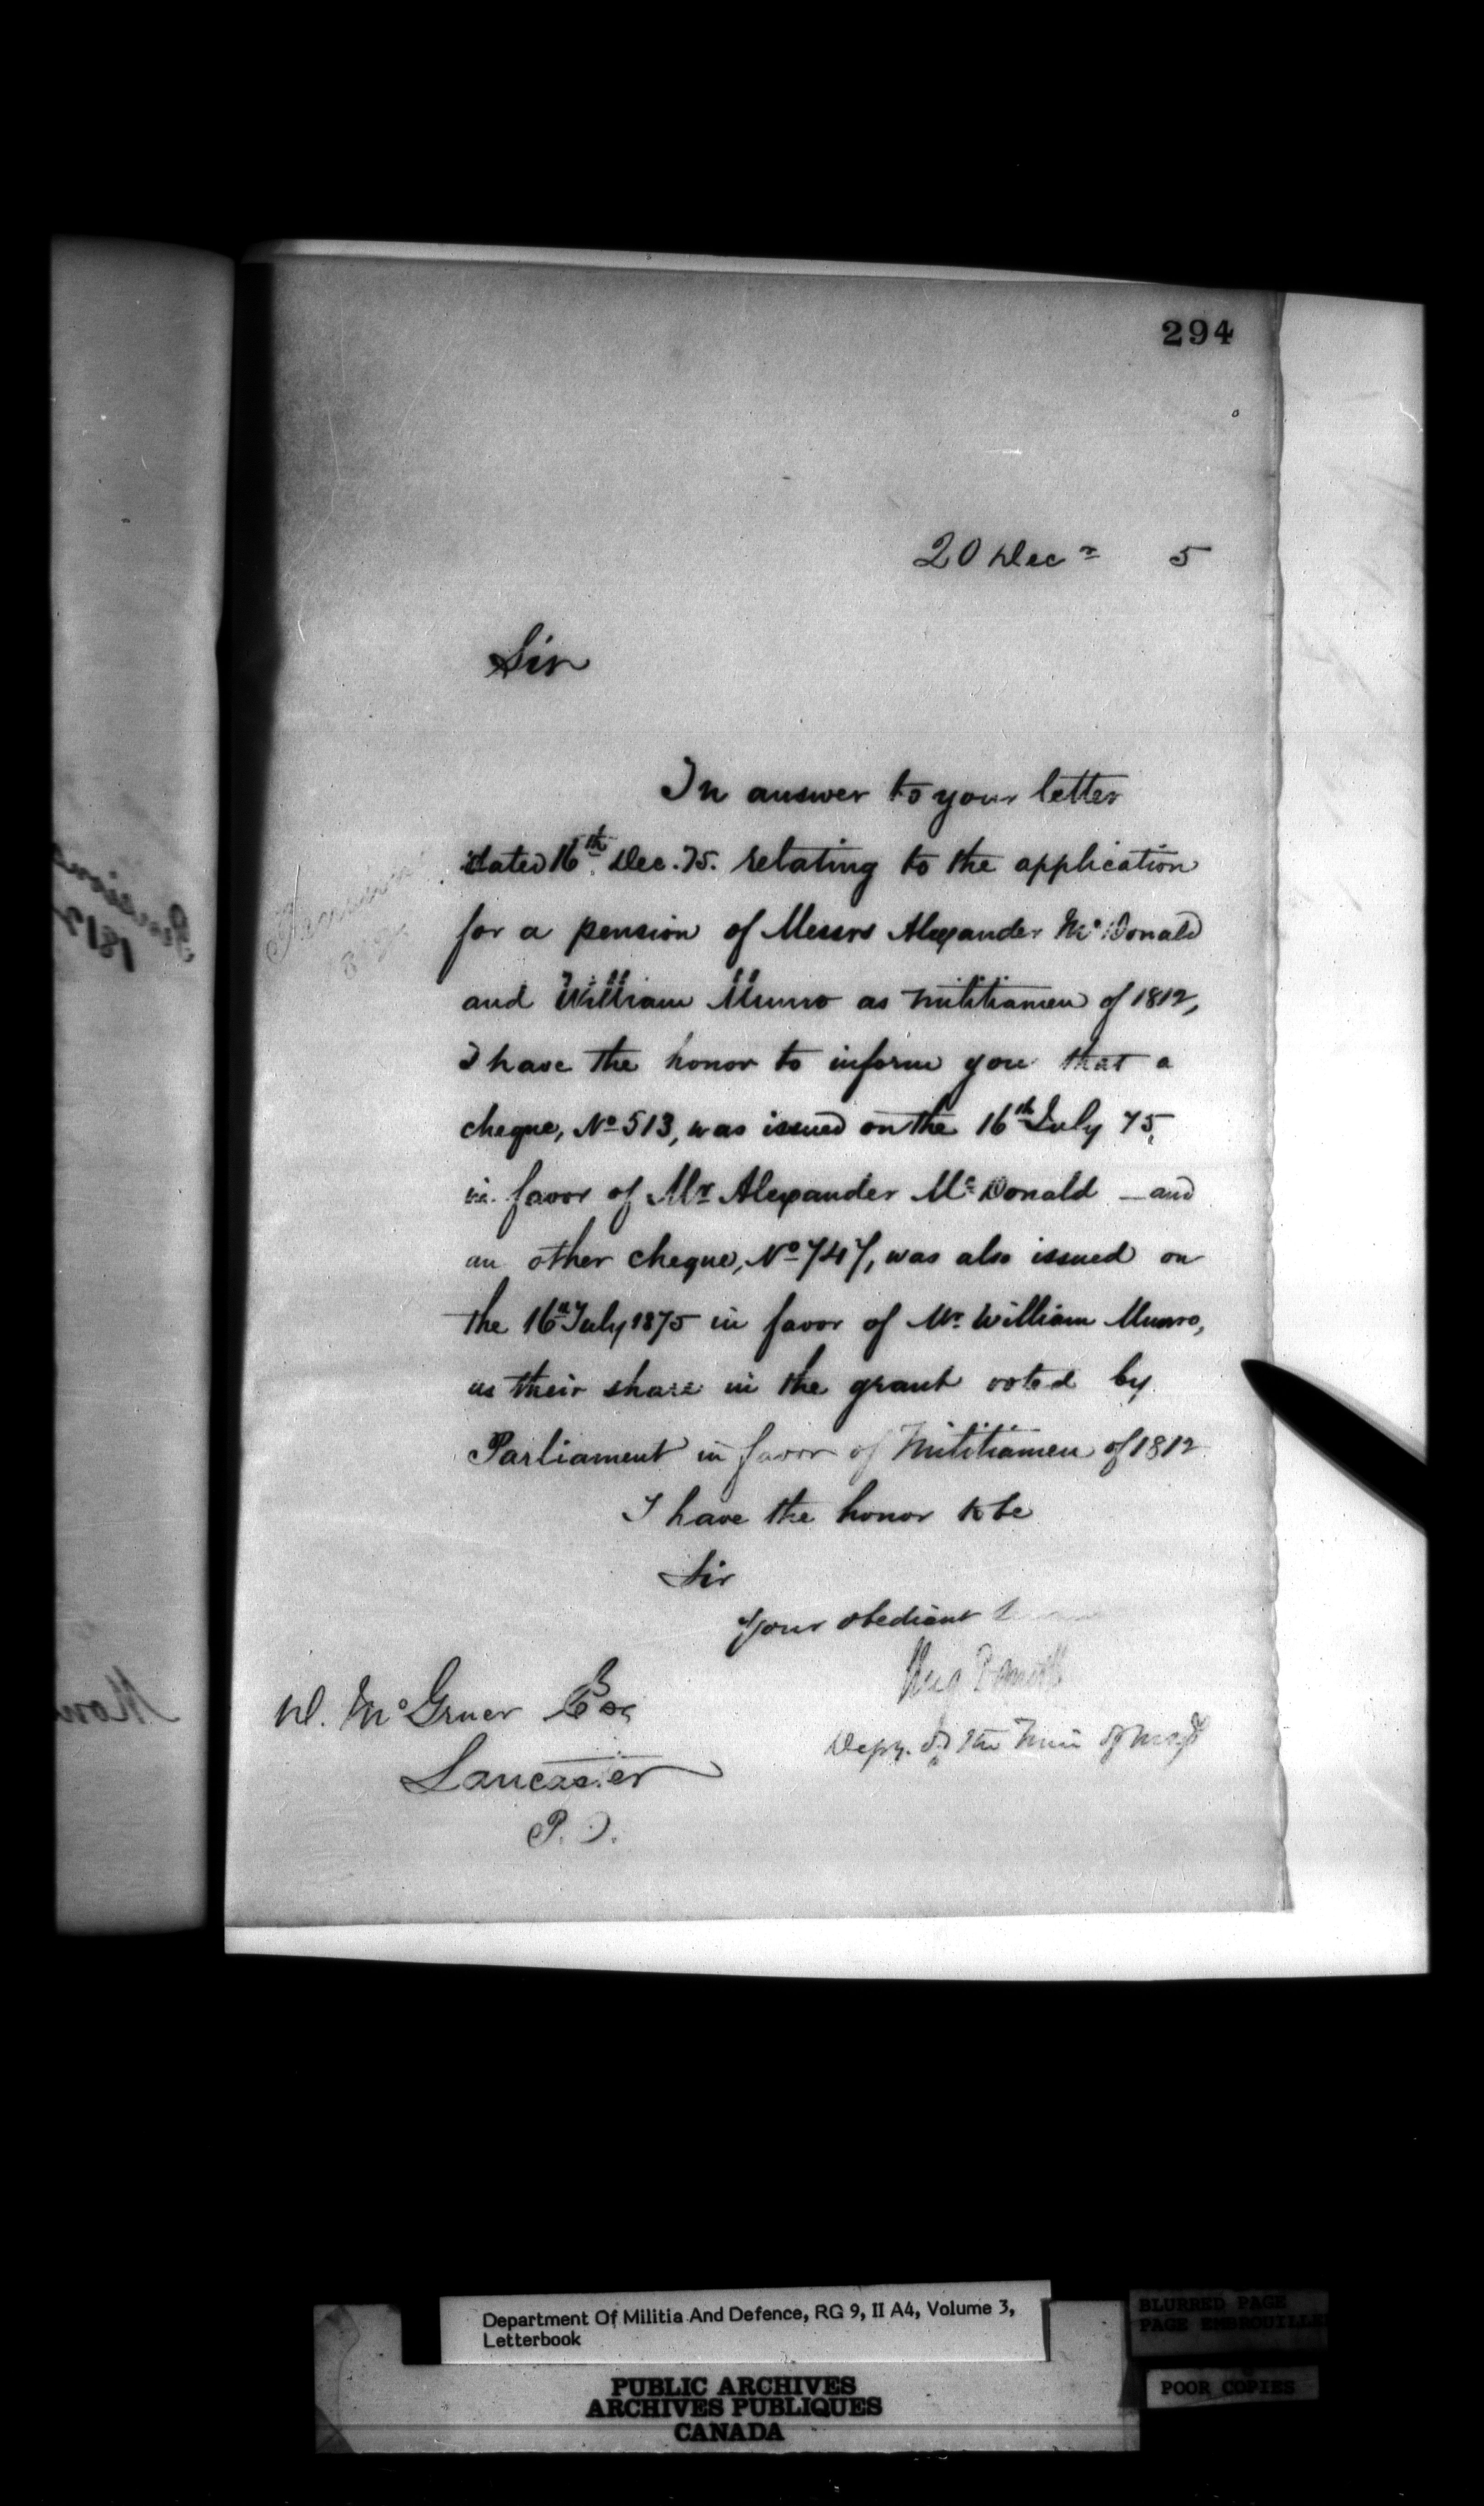 294
20 Decr 5
Sir
In answer to your letter
dated 16th Dec. 75. relating to the application
for a pension of Messrs Alexander Mc Donald
and William Munro as militiamen of 1812,
I have the honor to inform you that a
cheque, No 513, was issued on the 16th July 75,
in favor of Mr Alexander Mc Donald - and
an other cheque, No 747, was also issued on
the 16th July 1875 in favor of Mr William Munro,
as their share in the grant voted by
Parliament in favor of Militiamen of 1812
I have the honor to be
Sir
Your obediant
D. McGruer Esq
Depy. of the Min of
Lancaster
P. O.
Pensions
1812
Department Of Militia And Defence, RG 9, II A4, Volume 3,
Letterbook
PUBLIC ARCHIVES
ARCHIVES PUBLIQUES
CANADA
BLURRED PAGE
PAGE EMBROUILLE
POOR COPIES